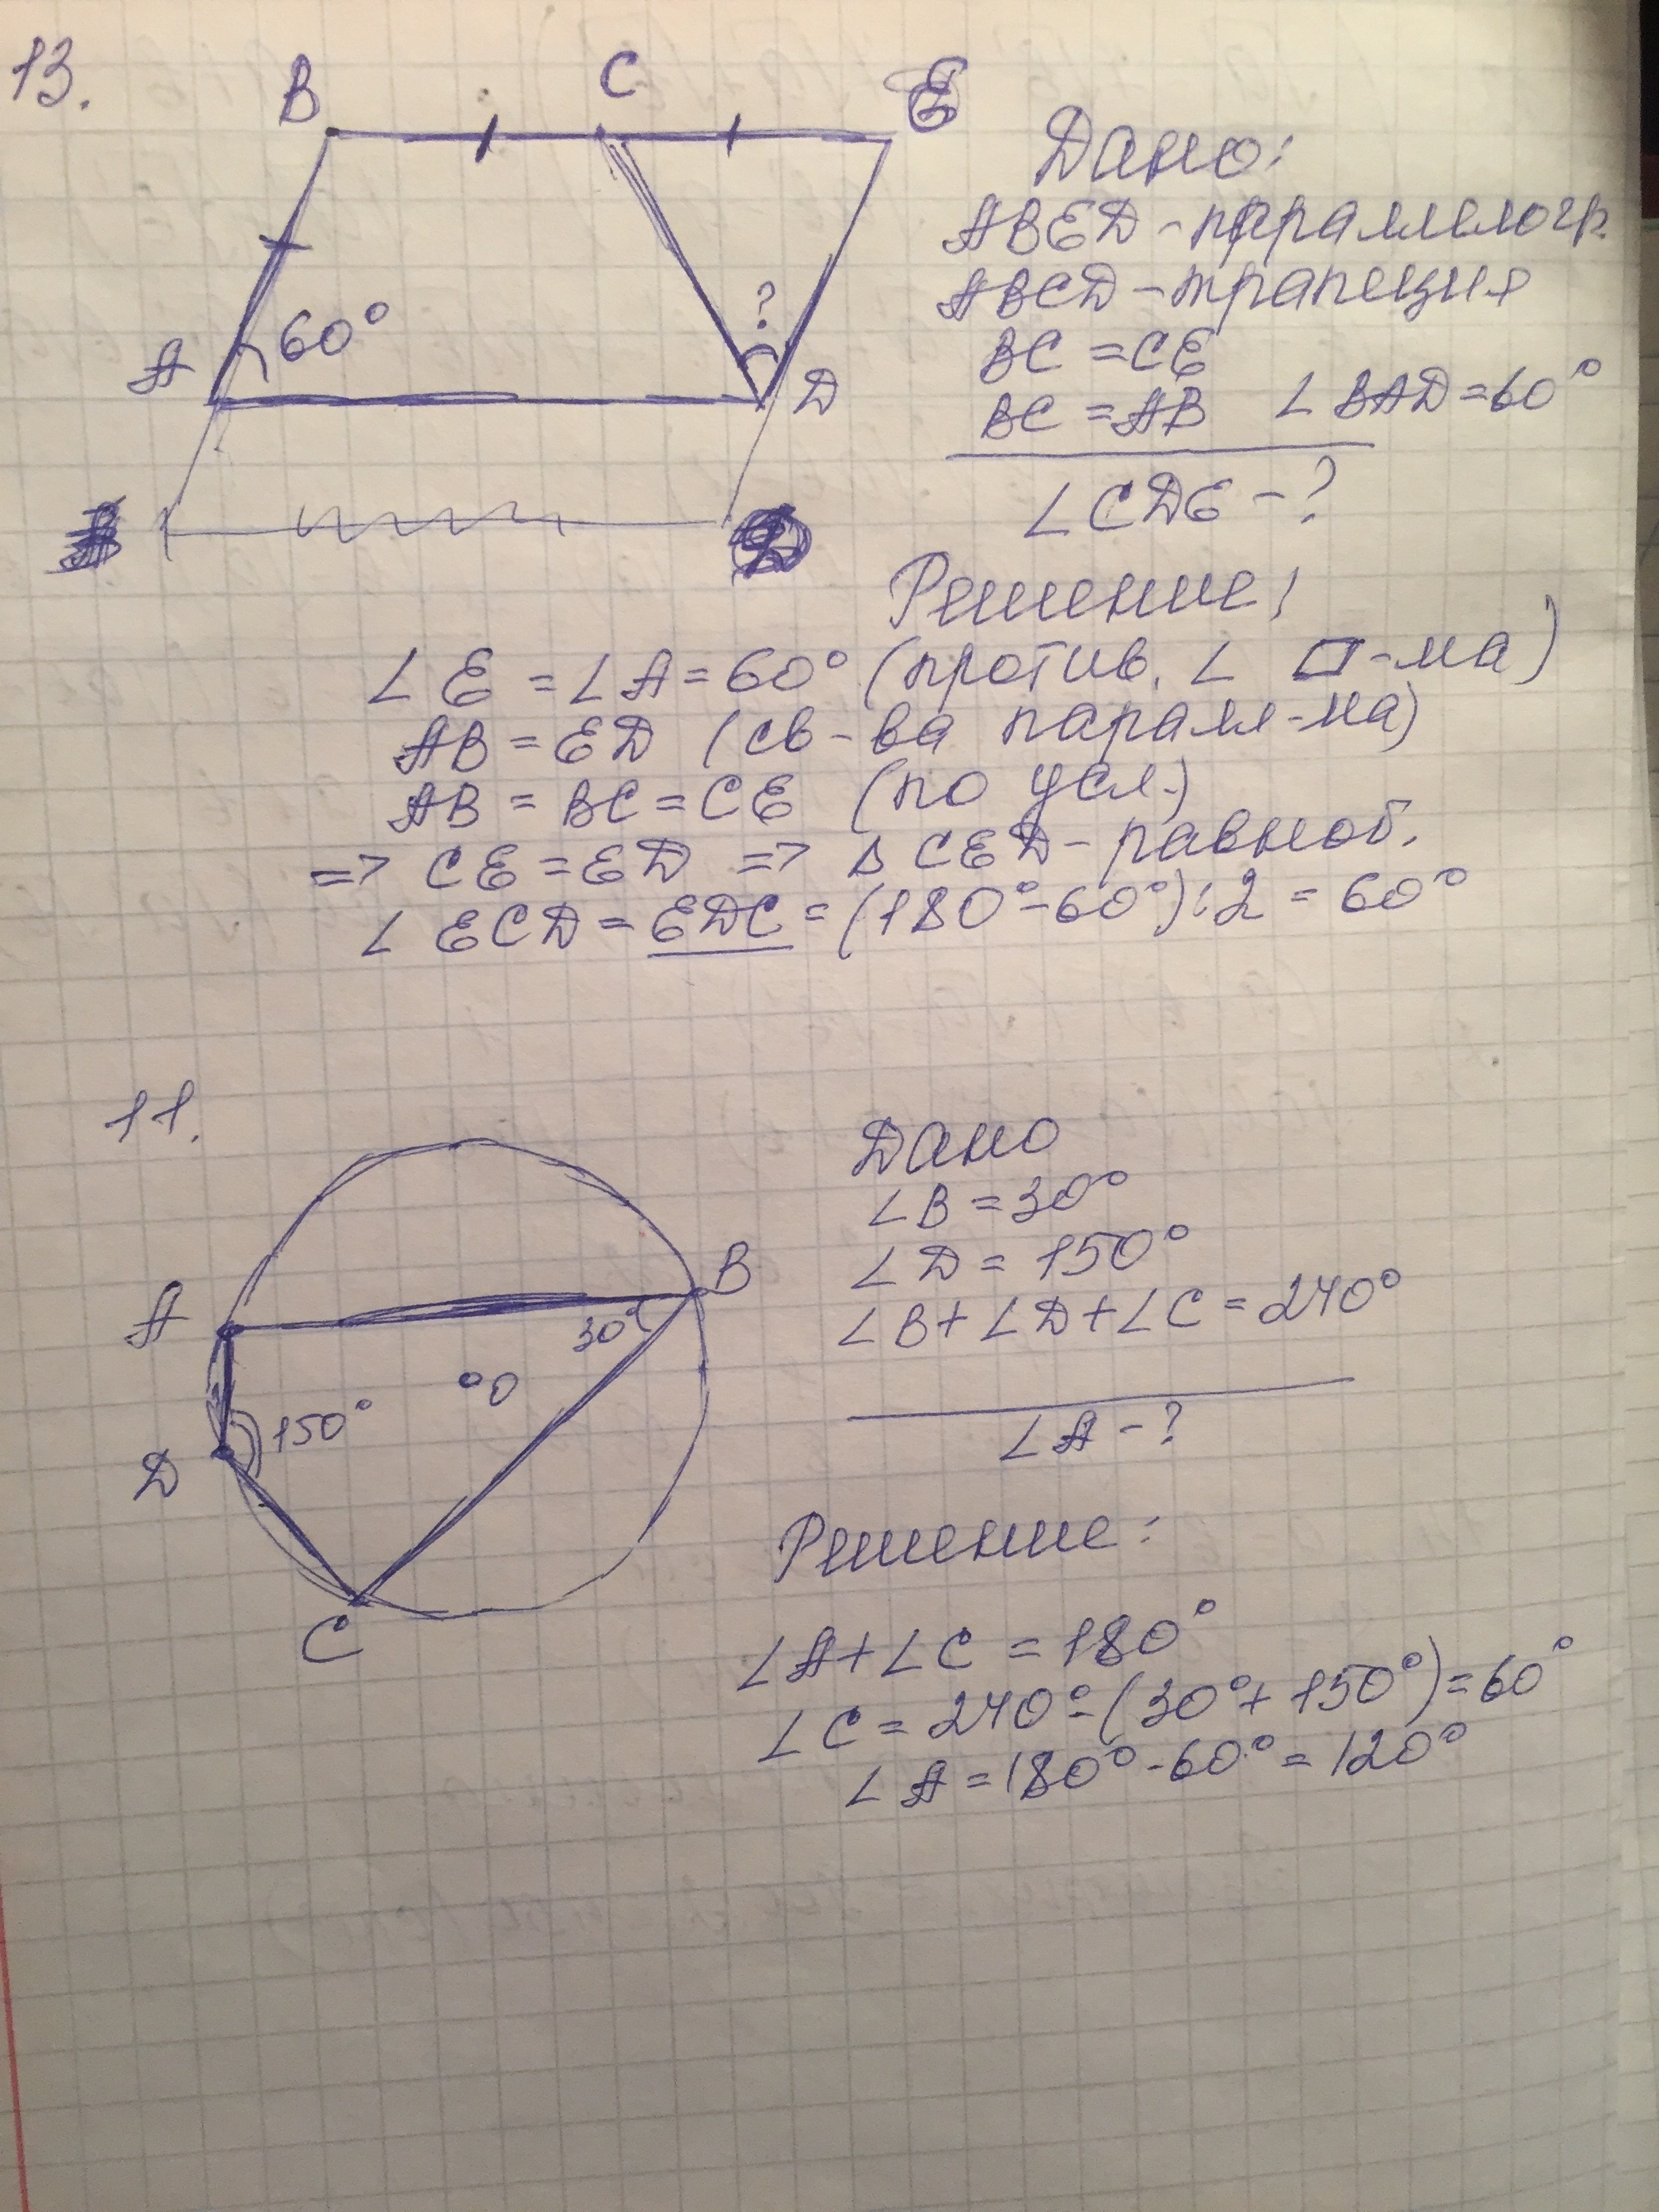 13.
B C E
A 60° ? D
Дано:
ABED - параллелогр.
ABCD - трапеция
BC = CE
BC = AB ∠BAD = 60°
∠CDE - ?
Решение:
∠E = ∠A = 60° (против. ∠ ▱-ма)
AB = ED (св-ва паралл-ма)
AB = BC = CE (по усл.)
=> CE = ED => Δ CED - равноб.
∠ECD = EDC = (180° - 60°) : 2 = 60°
11.
A B
30°
O
150°
D
C
Дано
∠B = 30°
∠D = 150°
∠B + ∠D + ∠C = 240°
∠A - ?
Решение:
∠A + ∠C = 180°
∠C = 240° - (30° + 150°) = 60°
∠A = 180° - 60° = 120°